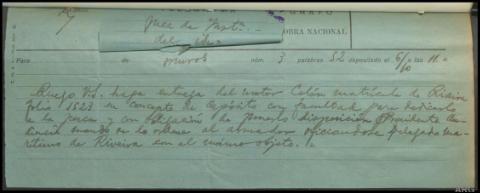 Juez de Instn.
OBRA NACIONAL
Para de Muros núm. 3 palabras 52 depositado el 6/10 a las 11
Ruego Vd. haga entrega del motor Colón matrícula de Riveira
folio 1523 en concepto de depósito con facultad para dedicarlo
a la pesca y con obligación de ponerlo disposición Presidente
al armador oficiando Delegado Ma
rítimo de Riveira con el mismo objeto.